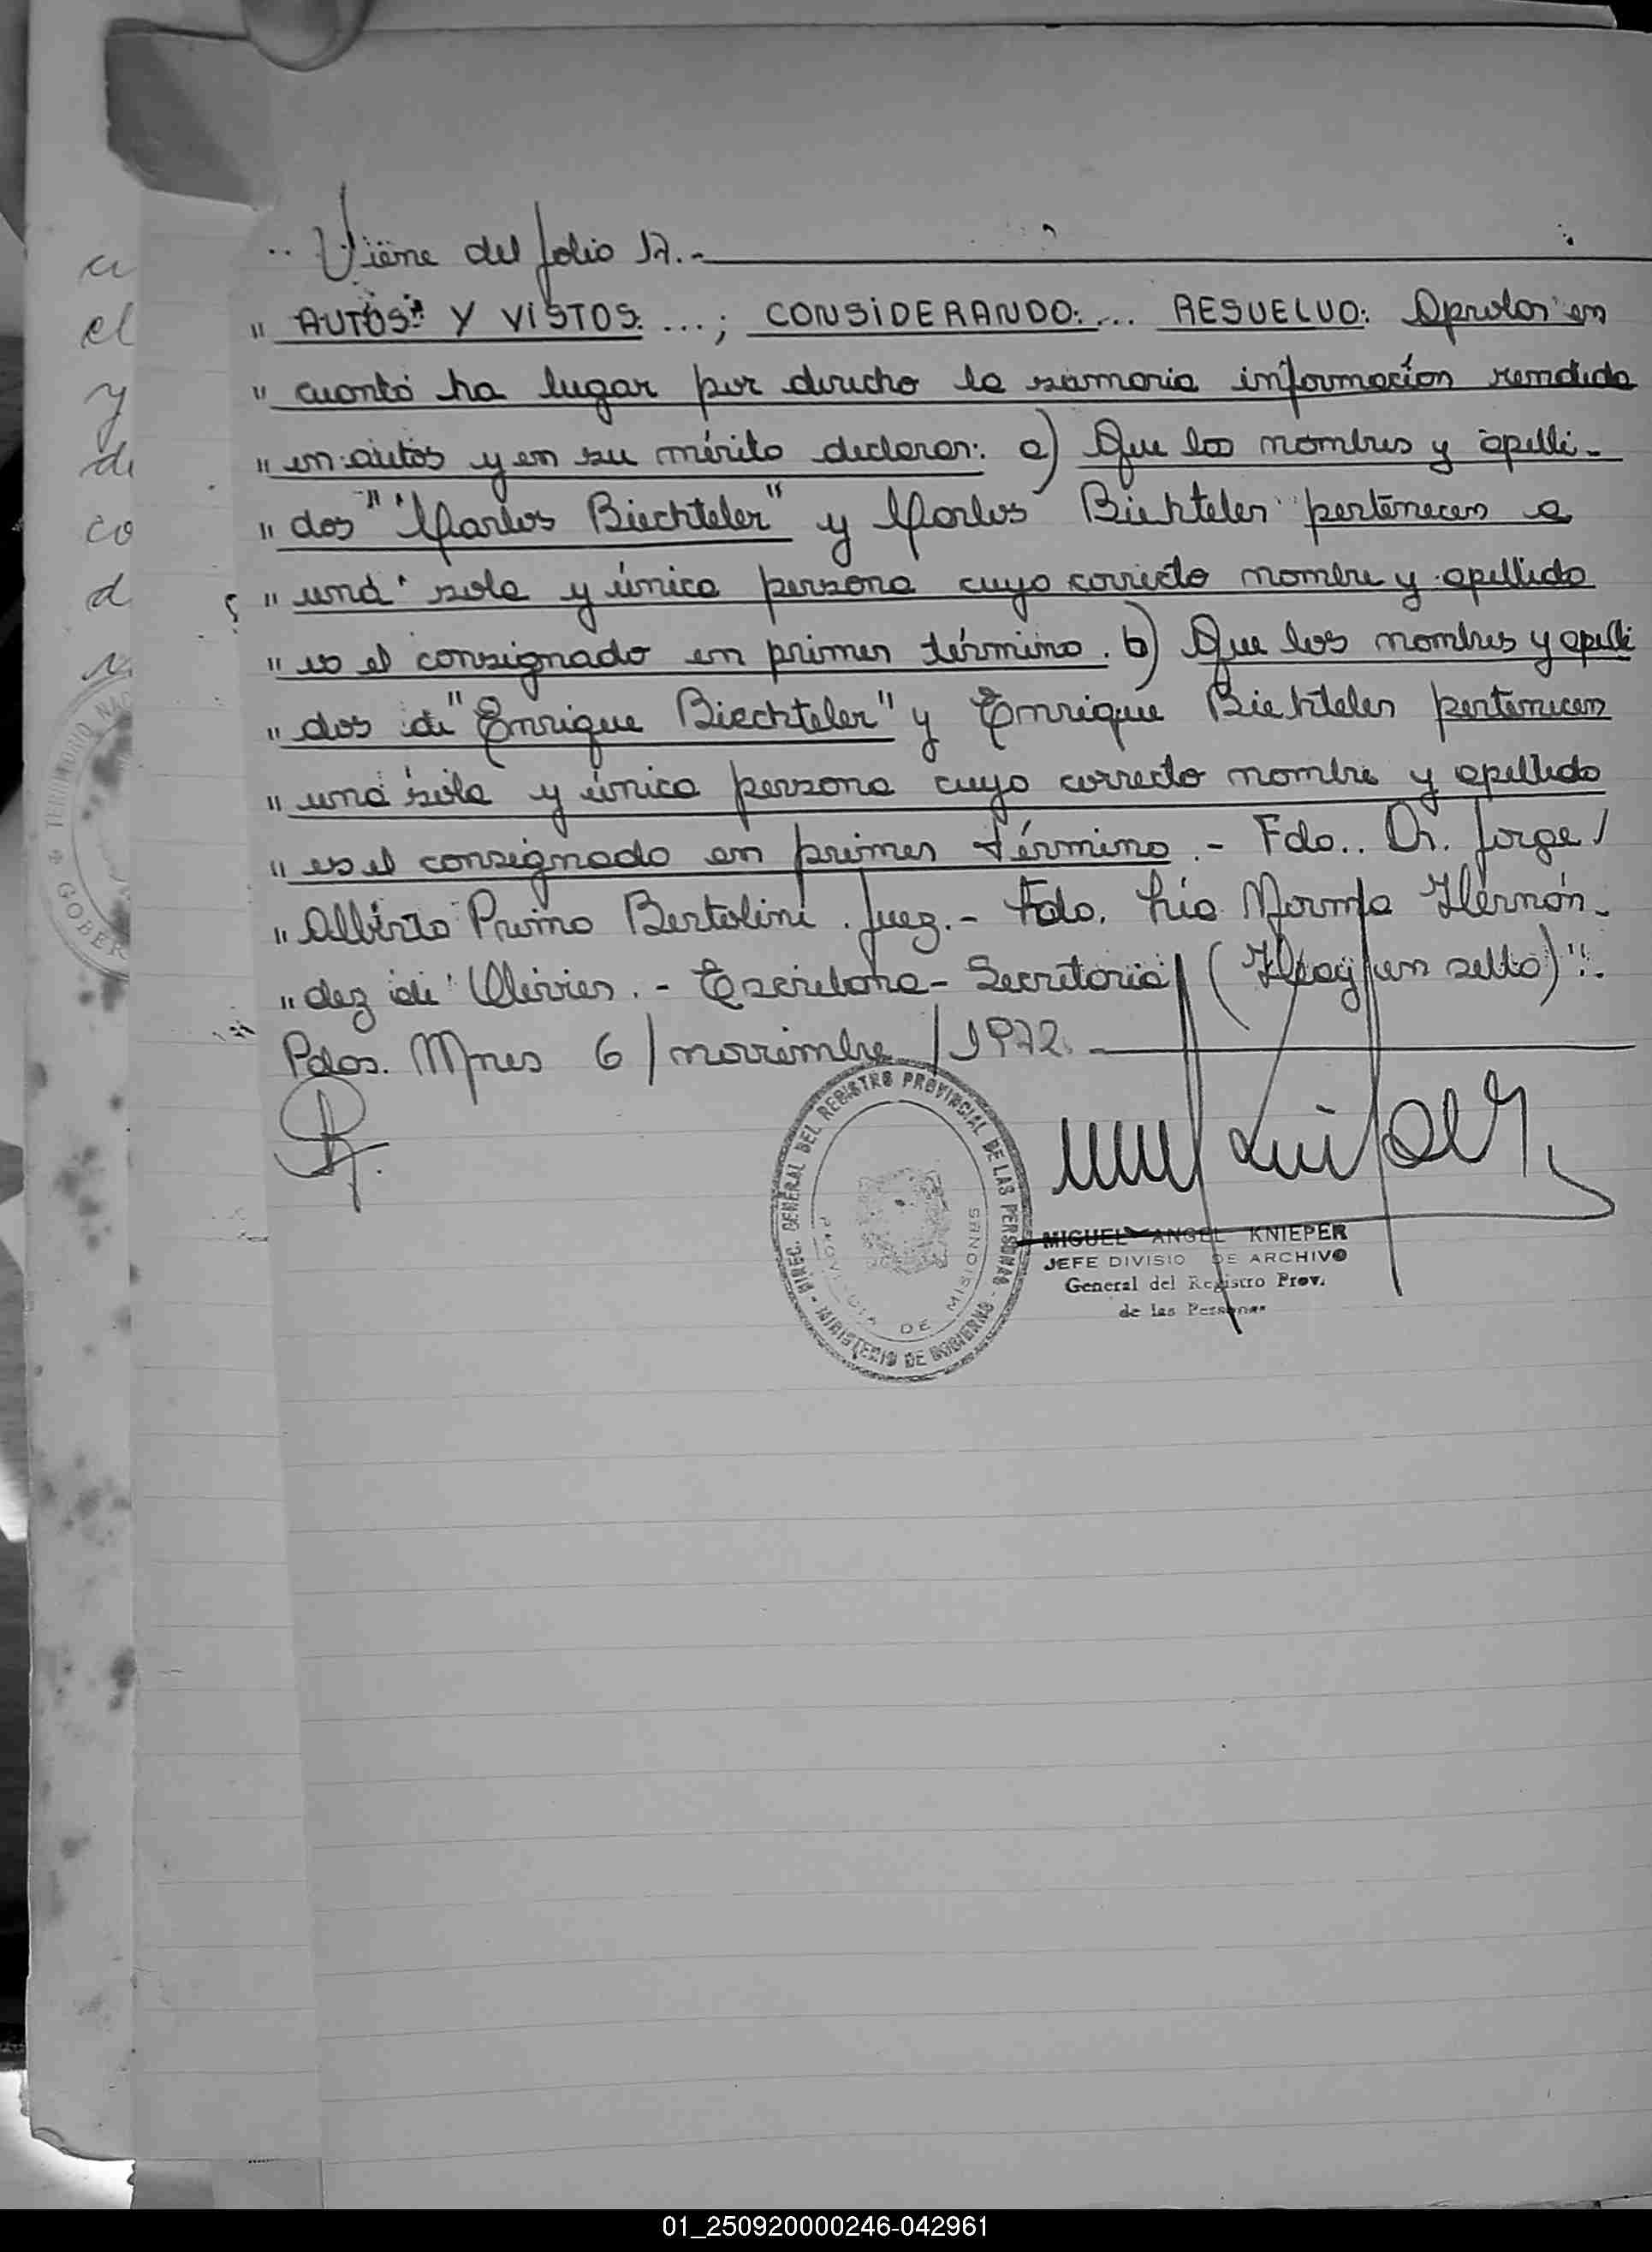 Viene del folio 17.-
" AUTOS Y VISTOS: ...; CONSIDERANDO: ... RESUELVO: Aprobar en
" cuanto ha lugar por derecho la sumaria información rendida
" en autos y en su mérito declarar: a) Que los nombres y apelli-
" dos "Carlos Biechteler" y Carlos Biehteler pertenecen a
" una sola y única persona cuyo correcto nombre y apellido
" es el consignado en primer término. b) Que los nombres y apelli
" dos de "Enrique Biechteler" y Enrique Biehteler pertenecen
" una sola y única persona cuyo correcto nombre y apellido
" es el consignado en primer término.- Fdo.. Dr. Jorge
" Alberto Primo Bertolini. Juez.- Fdo. Lía Norma Hernán-
" dez de Olivier.- Escribana- Secretaria (Hay un sello)".
Pdas. Mnes 6/noviembre/1972.
DIREC. GENERAL DEL REGISTRO PROVINCIAL DE LAS PERSONAS - MINISTERIO DE GOBIERNO -
PROVINCIA DE MISIONES
MIGUEL ANGEL KNIEPER
JEFE DIVISIO DE ARCHIVO
General del Registro Prov.
de las Personas
el
y
de
co
d
TERRITORIO NAC
GOBER
01_250920000246-042961